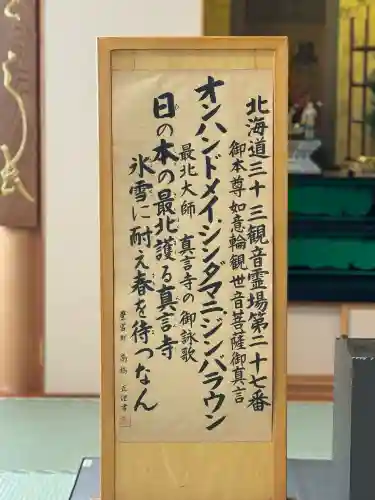 北海道三十三観音霊場第二十七番
御本尊如意輪観世音菩薩御真言
オンハンドメイ、シンダマニ、ジンバラウン
最北大師 真言寺の御詠歌
日の本の最北護る真言寺
氷雪に耐え春を待つなん